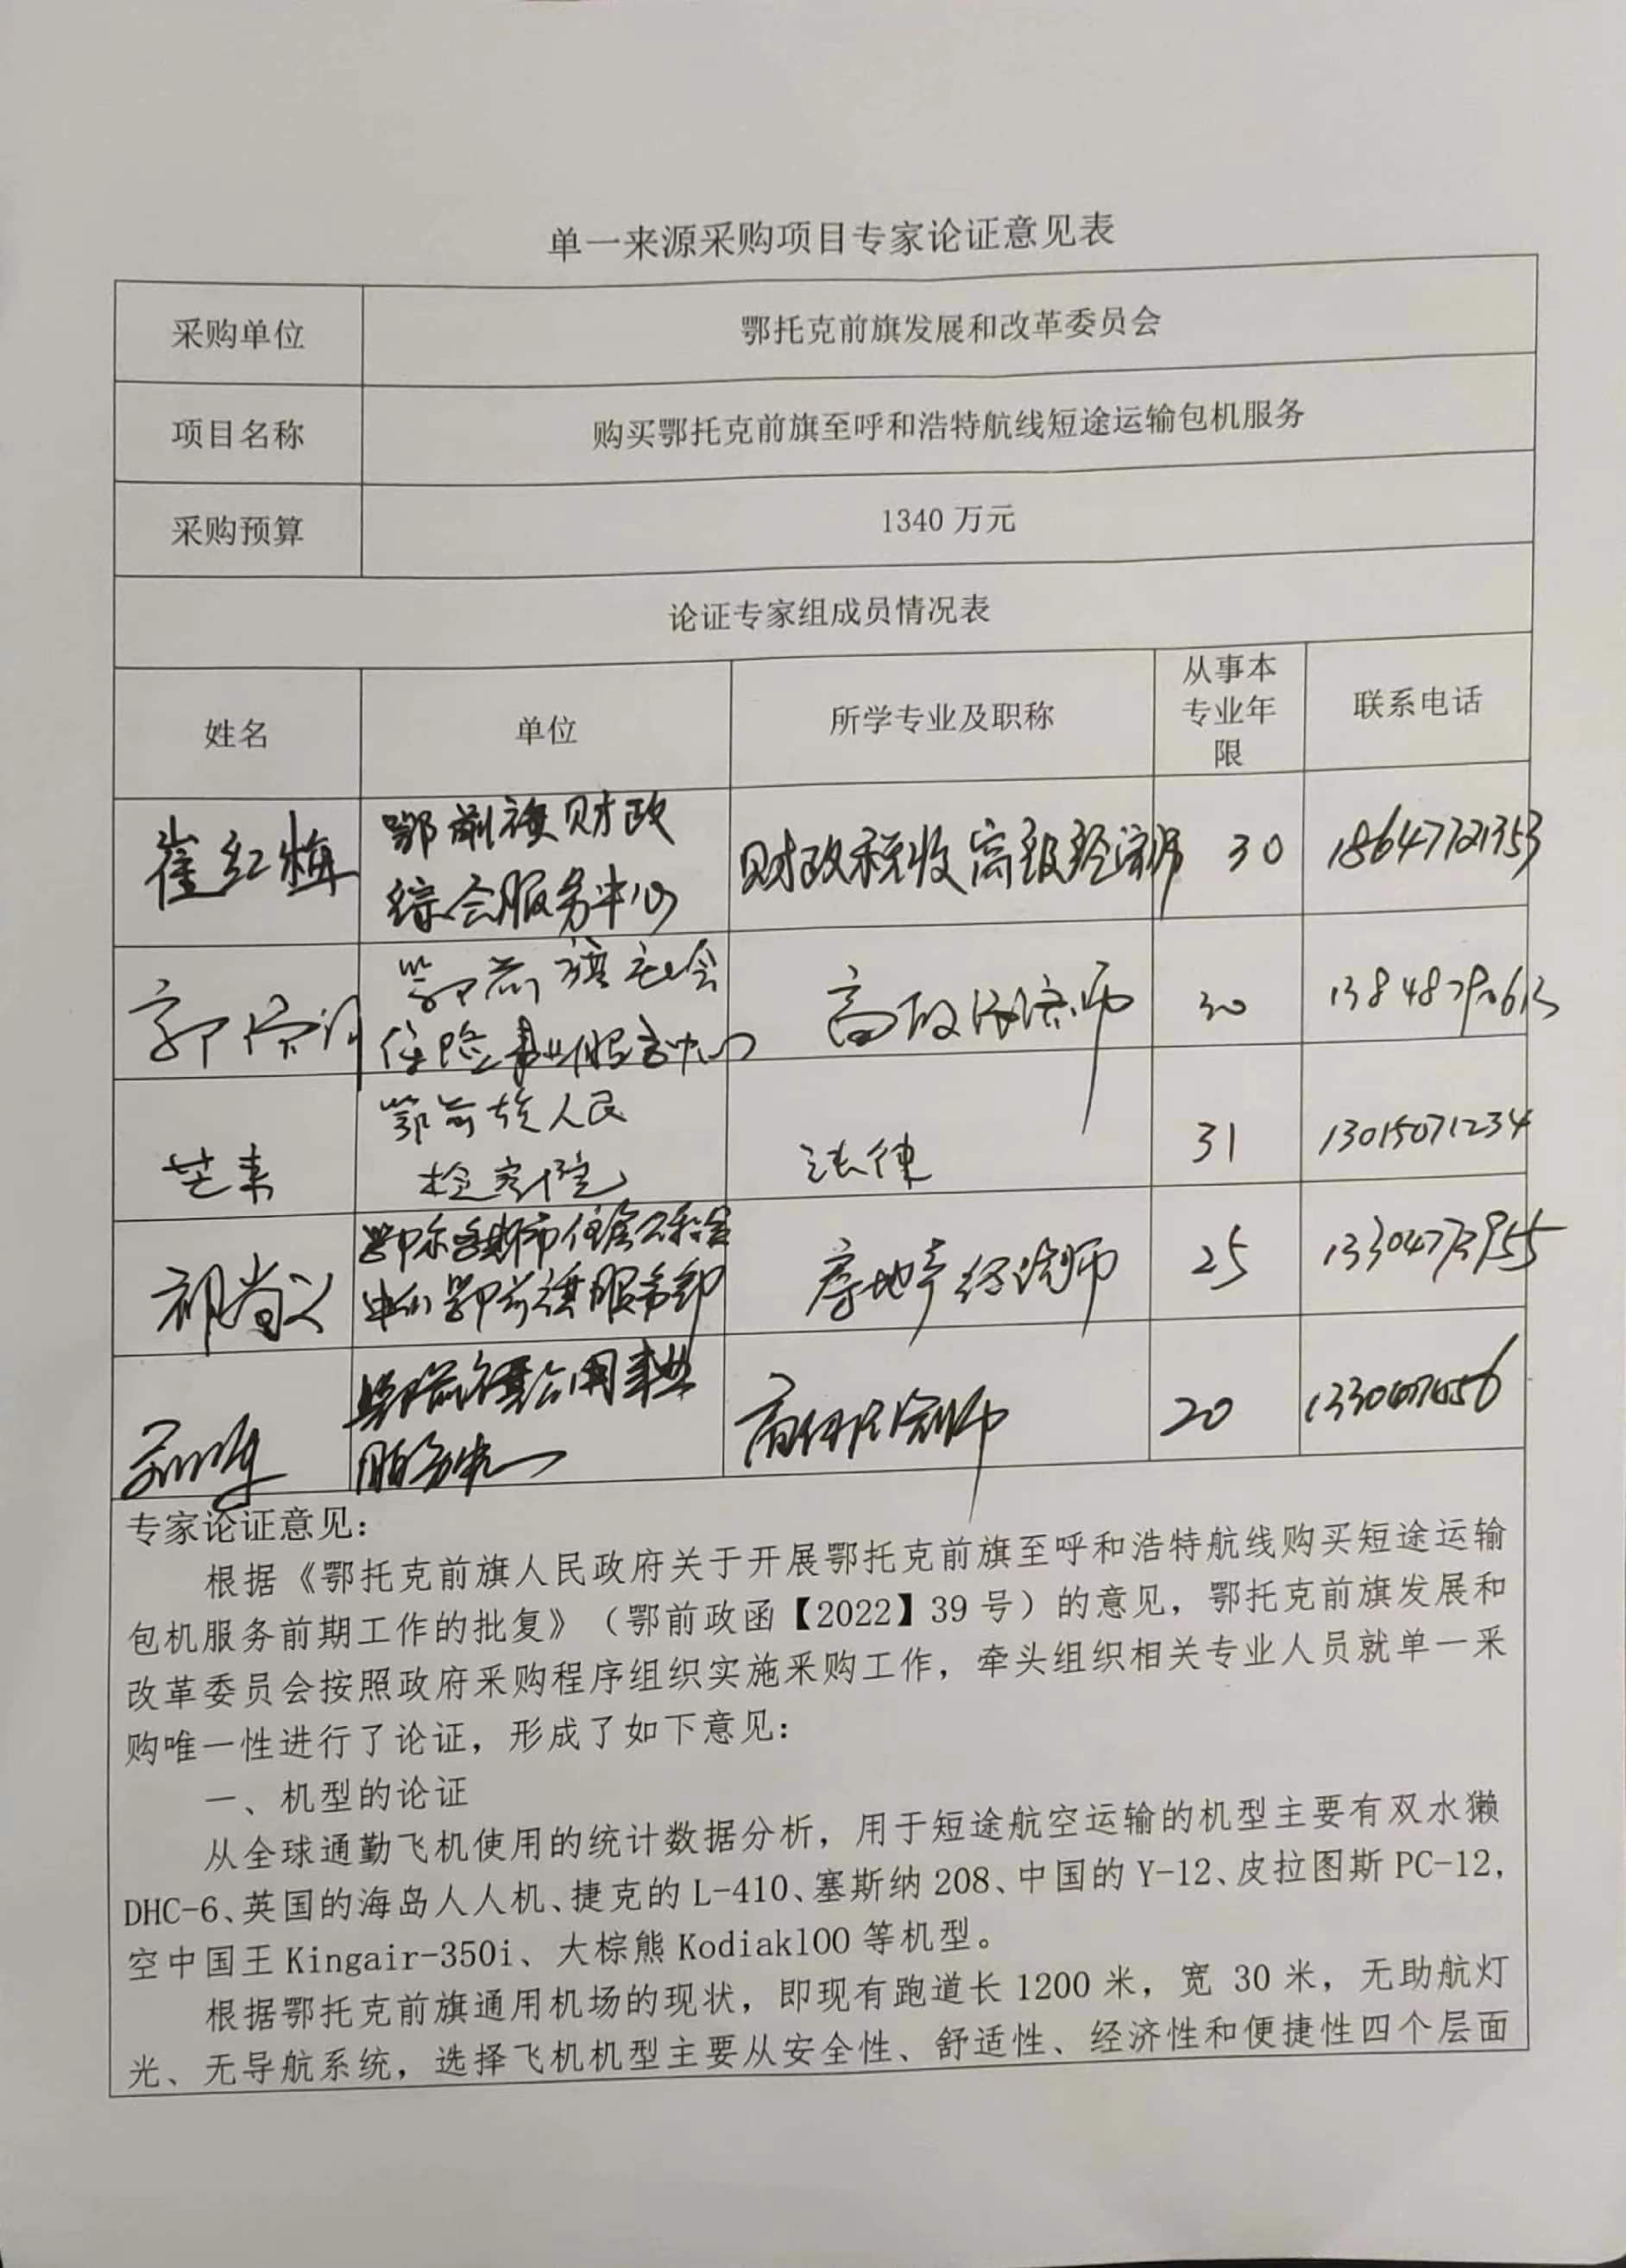 单一来源采购项目专家论证意见表
采购单位 鄂托克前旗发展和改革委员会
项目名称 购买鄂托克前旗至呼和浩特航线短途运输包机服务
采购预算 1340 万元
论证专家组成员情况表
姓名 单位 所学专业及职称 从事本专业年限 联系电话
崔红梅 鄂前旗财政 财政税收高级经济师 30 18647721353
综合服务中心
郭 鄂前旗社会 高级经济师 30
保险事业服务中心
芒来 鄂前旗人民 法律 31 13015071234
检察院
祁尚义 鄂尔多斯市住房公积金 房地产经济师 25
中心鄂前旗服务部
鄂前旗公用事业 20
服务中心
专家论证意见：
根据《鄂托克前旗人民政府关于开展鄂托克前旗至呼和浩特航线购买短途运输
包机服务前期工作的批复》（鄂前政函【2022】39 号）的意见，鄂托克前旗发展和
改革委员会按照政府采购程序组织实施采购工作，牵头组织相关专业人员就单一采
购唯一性进行了论证，形成了如下意见：
一、机型的论证
从全球通勤飞机使用的统计数据分析，用于短途航空运输的机型主要有双水獭
DHC-6、英国的海岛人人机、捷克的 L-410、塞斯纳 208、中国的 Y-12、皮拉图斯 PC-12，
空中国王 Kingair-350i、大棕熊 Kodiak100 等机型。
根据鄂托克前旗通用机场的现状，即现有跑道长 1200 米，宽 30 米，无助航灯
光、无导航系统，选择飞机机型主要从安全性、舒适性、经济性和便捷性四个层面